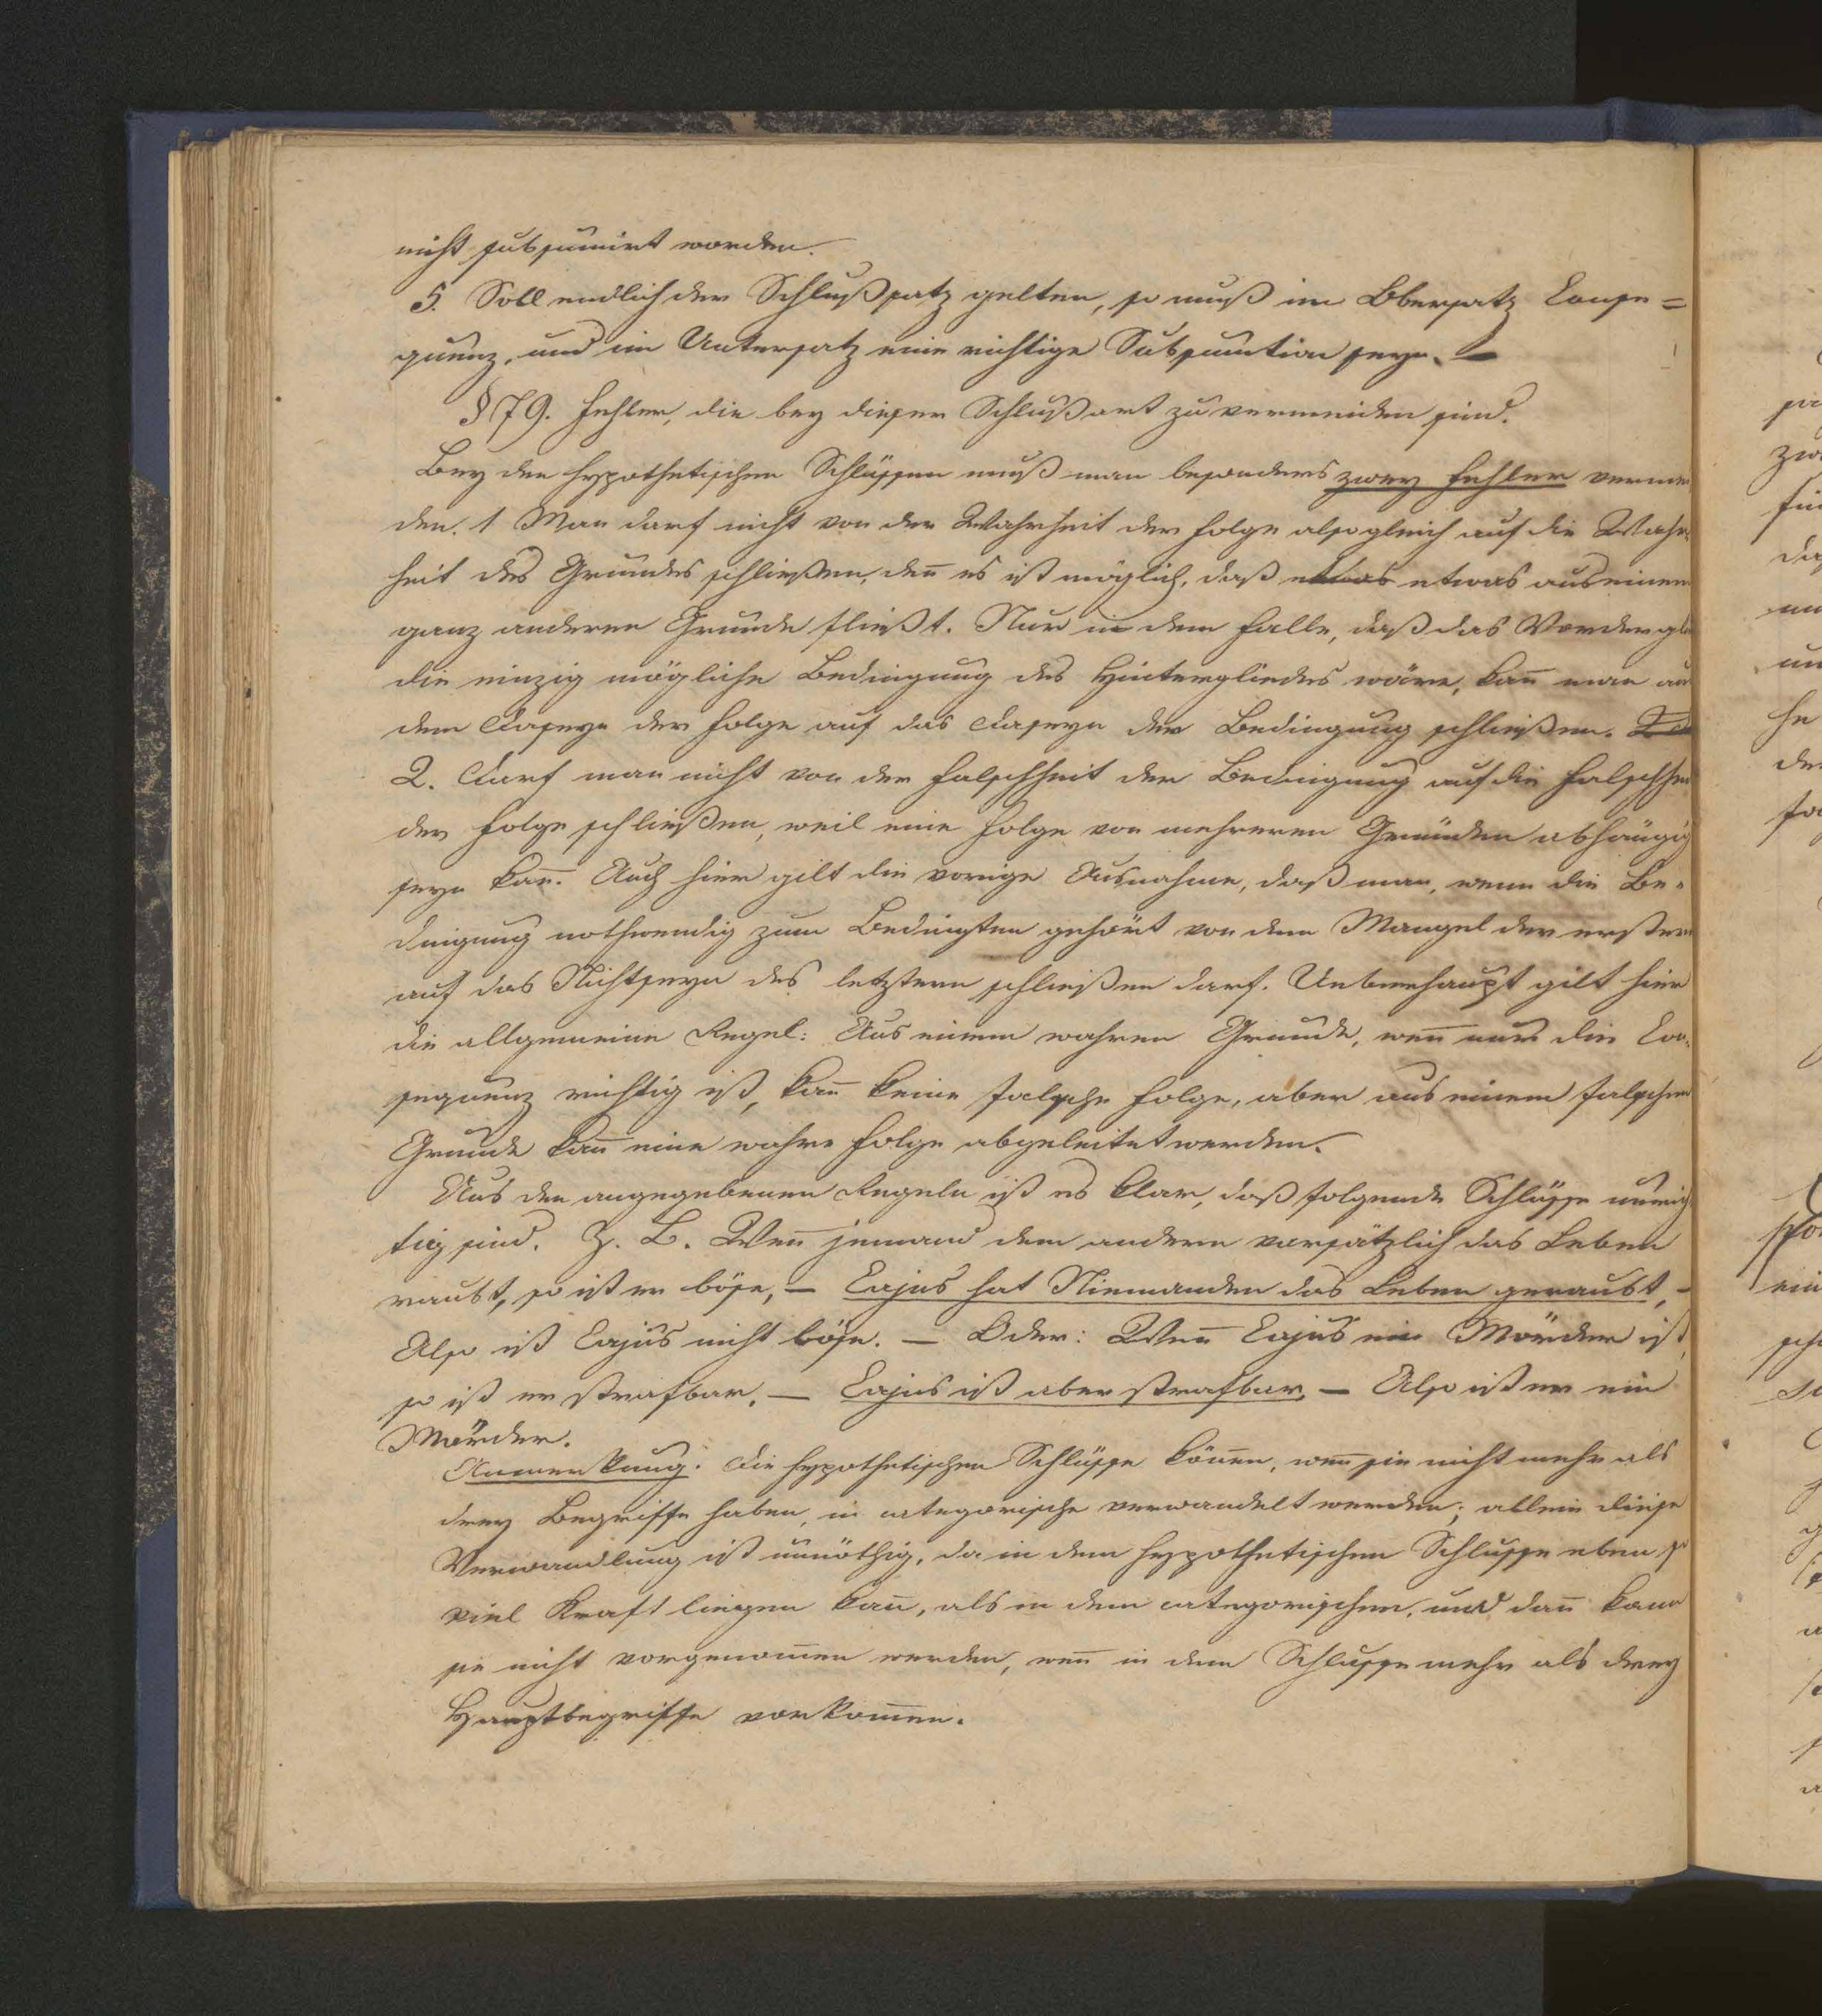 nicht subsumirt worden.
5. Soll endlich der Schlußsatz gelten, so muß im Obersatz Conse=
quenz, und im Untersatz eine richtige Subsumtion seyn. —
§ 79. Fehler, die bey dieser Schlußart zu vermeiden sind.
Bey den hypothetischen Schlüssen muß man besonders zwey Fehler vermei
den. 1 Man darf nicht von der Wahrheit der Folge alsogleich auf die Wahr
heit des Grundes schließen, deñ es ist möglich, daß etwas etwas aus einem
ganz anderen Grunde fließt. Nur in dem Falle, daß das Vordergl
die einzig mögliche Bedingung des Hintergliedes wäre, kañ man au
dem Daseyn der Folge auf das Daseyn der Bedingung schließen.
2. Darf man nicht von der Falschheit der Bedingung auf die Falschhei
der Folge schließen, weil eine Folge von mehreren Gründen abhängig
seyn kañ. Auch hier gilt die vorige Ausnahme, daß man, wenn die Be=
dingung nothwendig zum Bedingten gehört von dem Mangel der erstern
auf das Nichtseyn des letztern schließen darf. Ueberhaupt gilt hier
die allgemeine Regel: Aus einem wahren Grunde, weñ nur die Con=
sequenz richtig ist, kañ keine falsche Folge, aber aus einem falschen
Grunde kañ eine wahre Folge abgeleitet werden.
Aus den angegebenen Regeln ist es klar, daß folgende Schlüsse unrich
tig sind. Z. B. Weñ jemand dem andern vorsätzlich das Leben
raubt, so ist er böse, — Cajus hat Niemanden das Leben geraubt, —
Also ist Cajus nicht böse. — Oder: Weñ Cajus ein Mörder ist,
so ist er strafbar. — Cajus ist aber strafbar, — Also ist er ein
Mörder.
Anmerkung: Die hypothetischen Schlüsse köñen, weñ sie nicht mehr als
drey Begriffe haben, in categorische verwandelt werden; allein diese
Verwandlung ist unnöthig, da in dem hypothetischen Schlusse eben so
viel Kraft liegen kañ, als in dem categorischen, und dañ kann
sie nicht vorgenom̄en werden, weñ in dem Schlusse mehr als drey
Hauptbegriffe vorkom̄en.